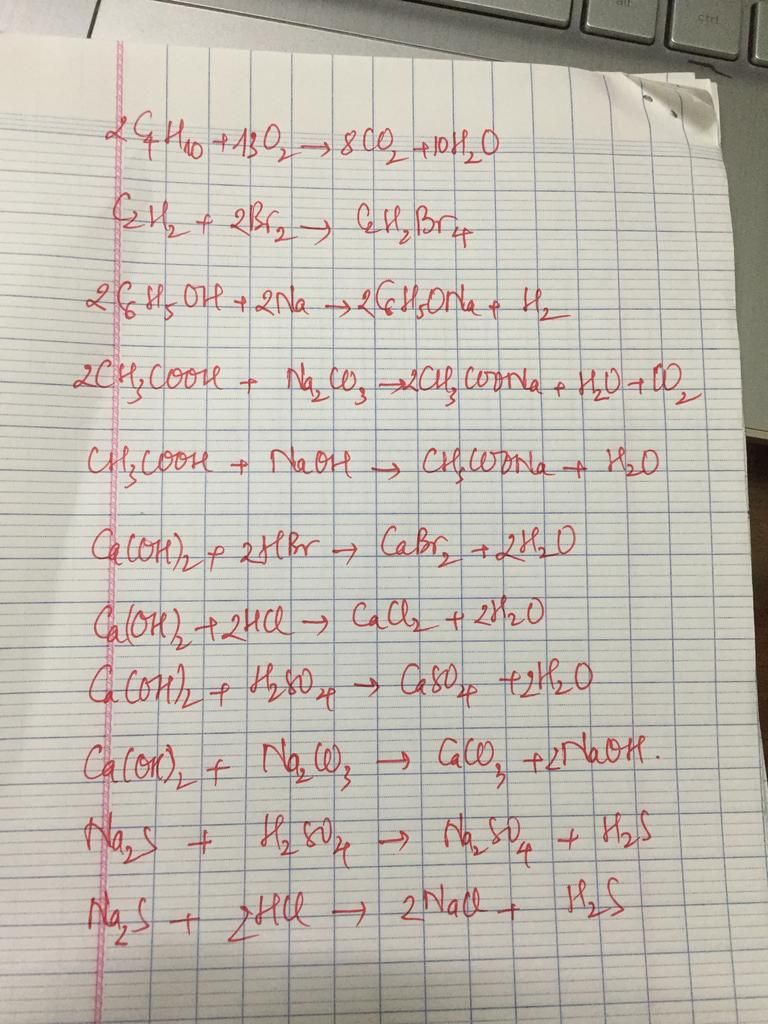 2C₄H₁₀ + 13O₂ → 8CO₂ + 10H₂O
C₂H₂ + 2Br₂ → C₂H₂Br₄
2C₆H₅OH + 2Na → 2C₆H₅ONa + H₂
2CH₃COOH + Na₂CO₃ → 2CH₃COONa + H₂O + CO₂
CH₃COOH + NaOH → CH₃COONa + H₂O
Ca(OH)₂ + 2HBr → CaBr₂ + 2H₂O
Ca(OH)₂ + 2HCl → CaCl₂ + 2H₂O
Ca(OH)₂ + H₂SO₄ → CaSO₄ + 2H₂O
Ca(OH)₂ + Na₂CO₃ → CaCO₃ + 2NaOH.
Na₂S + H₂SO₄ → Na₂SO₄ + H₂S
Na₂S + 2HCl → 2NaCl + H₂S